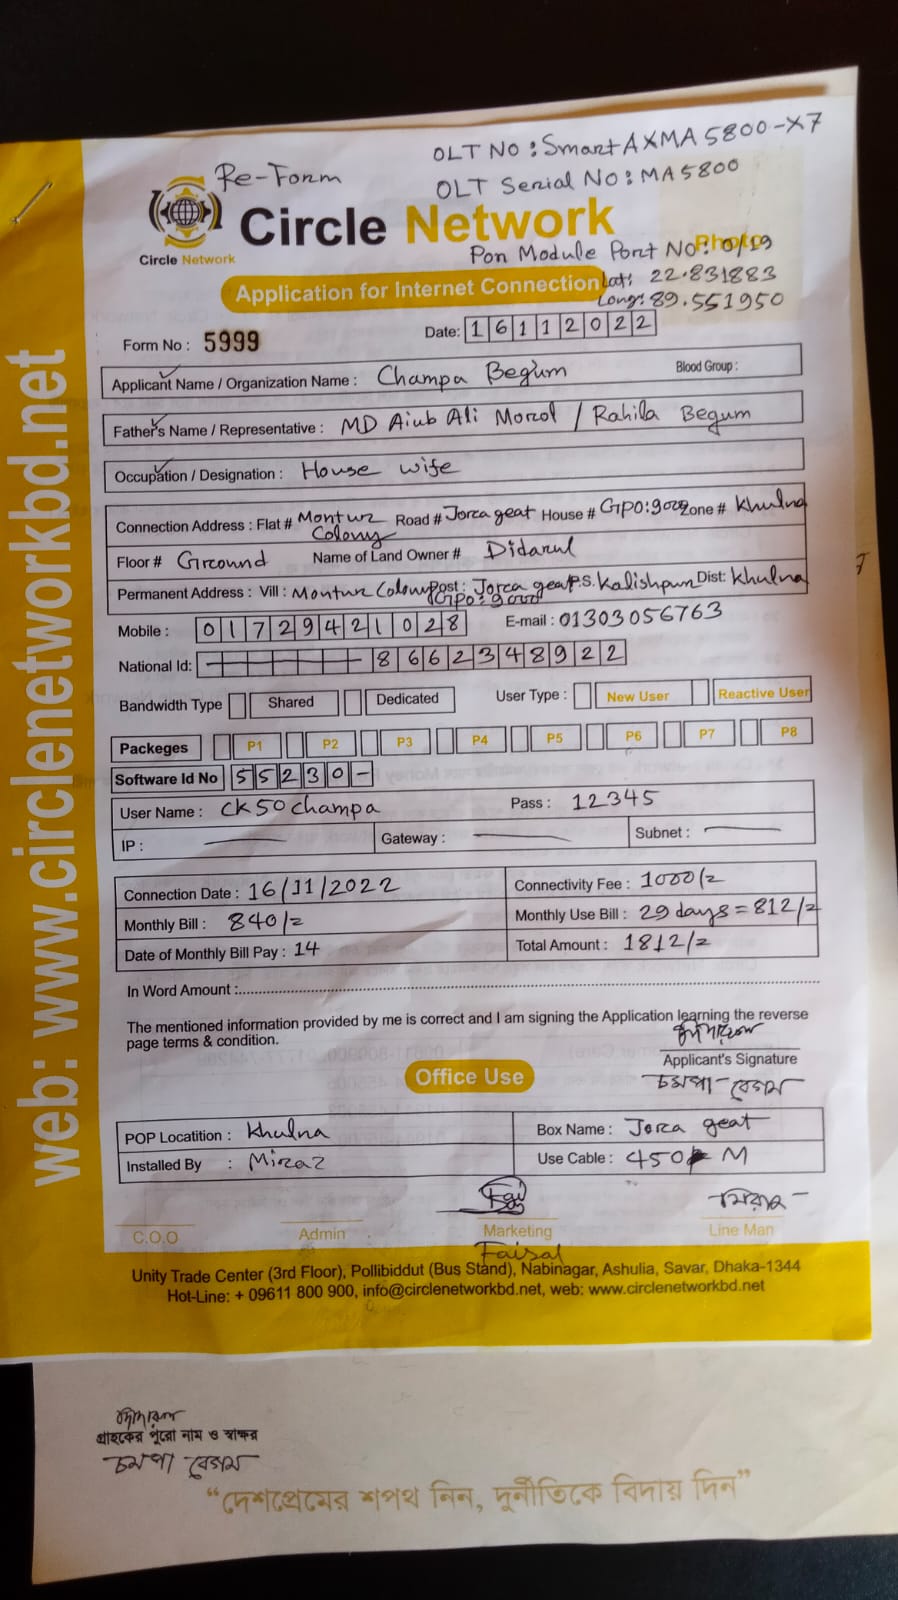 OLT NO : SmartAXMA5800-X7
Re-Form
OLT Serial No : MA5800
Circle Network
Circle Network
Photo
Pon Module Port No: 0/19
Application for Internet Connection
Lat: 22.831883
Long: 89.551950
Form No : 5999
Date: 16112022
Applicant Name / Organization Name : Champa Begum
Blood Group :
Father's Name / Representative : MD Aiub Ali Morol / Rahila Begum
Occupation / Designation : House wife
Connection Address : Flat # Montur Colony Road # Jorca geat House # GPO:9000 Zone # Khulna
Floor # Ground Name of Land Owner # Didarul
Permanent Address : Vill : Montur Colony Post : Jorca geat GPO:9000 P.S. Kalishpur Dist: Khulna
Mobile : 01729421028 E-mail : 01303056763
National Id: 8662348922
Bandwidth Type Shared Dedicated User Type : New User Reactive User
Packeges P1 P2 P3 P4 P5 P6 P7 P8
Software Id No 55230-
User Name : CK50champa Pass : 12345
IP : Gateway : Subnet :
Connection Date : 16/11/2022 Connectivity Fee : 1000/=
Monthly Bill : 840/= Monthly Use Bill : 29 days = 812/=
Date of Monthly Bill Pay : 14 Total Amount : 1812/=
In Word Amount :
The mentioned information provided by me is correct and I am signing the Application learning the reverse
page terms & condition.
Applicant's Signature
চমপা বেগম
Office Use
POP Locatition : Khulna Box Name : Jorca geat
Installed By : Miraz Use Cable : 450 M
মিরাজ
C.O.O Admin Marketing Line Man
Faisal
Unity Trade Center (3rd Floor), Pollibiddut (Bus Stand), Nabinagar, Ashulia, Savar, Dhaka-1344
Hot-Line: + 09611 800 900, info@circlenetworkbd.net, web: www.circlenetworkbd.net
web: www.circlenetworkbd.net
গ্রাহকের পুরো নাম ও স্বাক্ষর
চমপা বেগম
“দেশপ্রেমের শপথ নিন, দুর্নীতিকে বিদায় দিন”